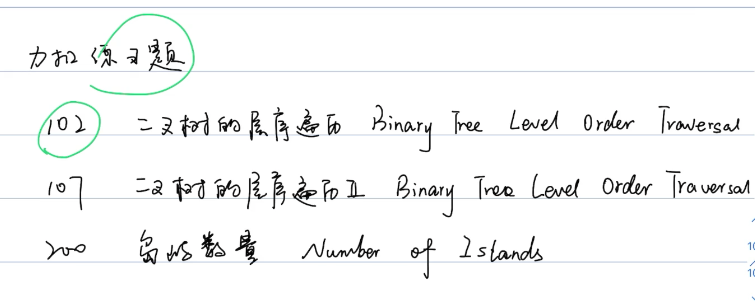 力扣 练习题
102 二叉树的层序遍历 Binary Tree Level Order Traversal
107 二叉树的层序遍历 II Binary Tree Level Order Traversal
200 岛屿数量 Number of Islands
10
10